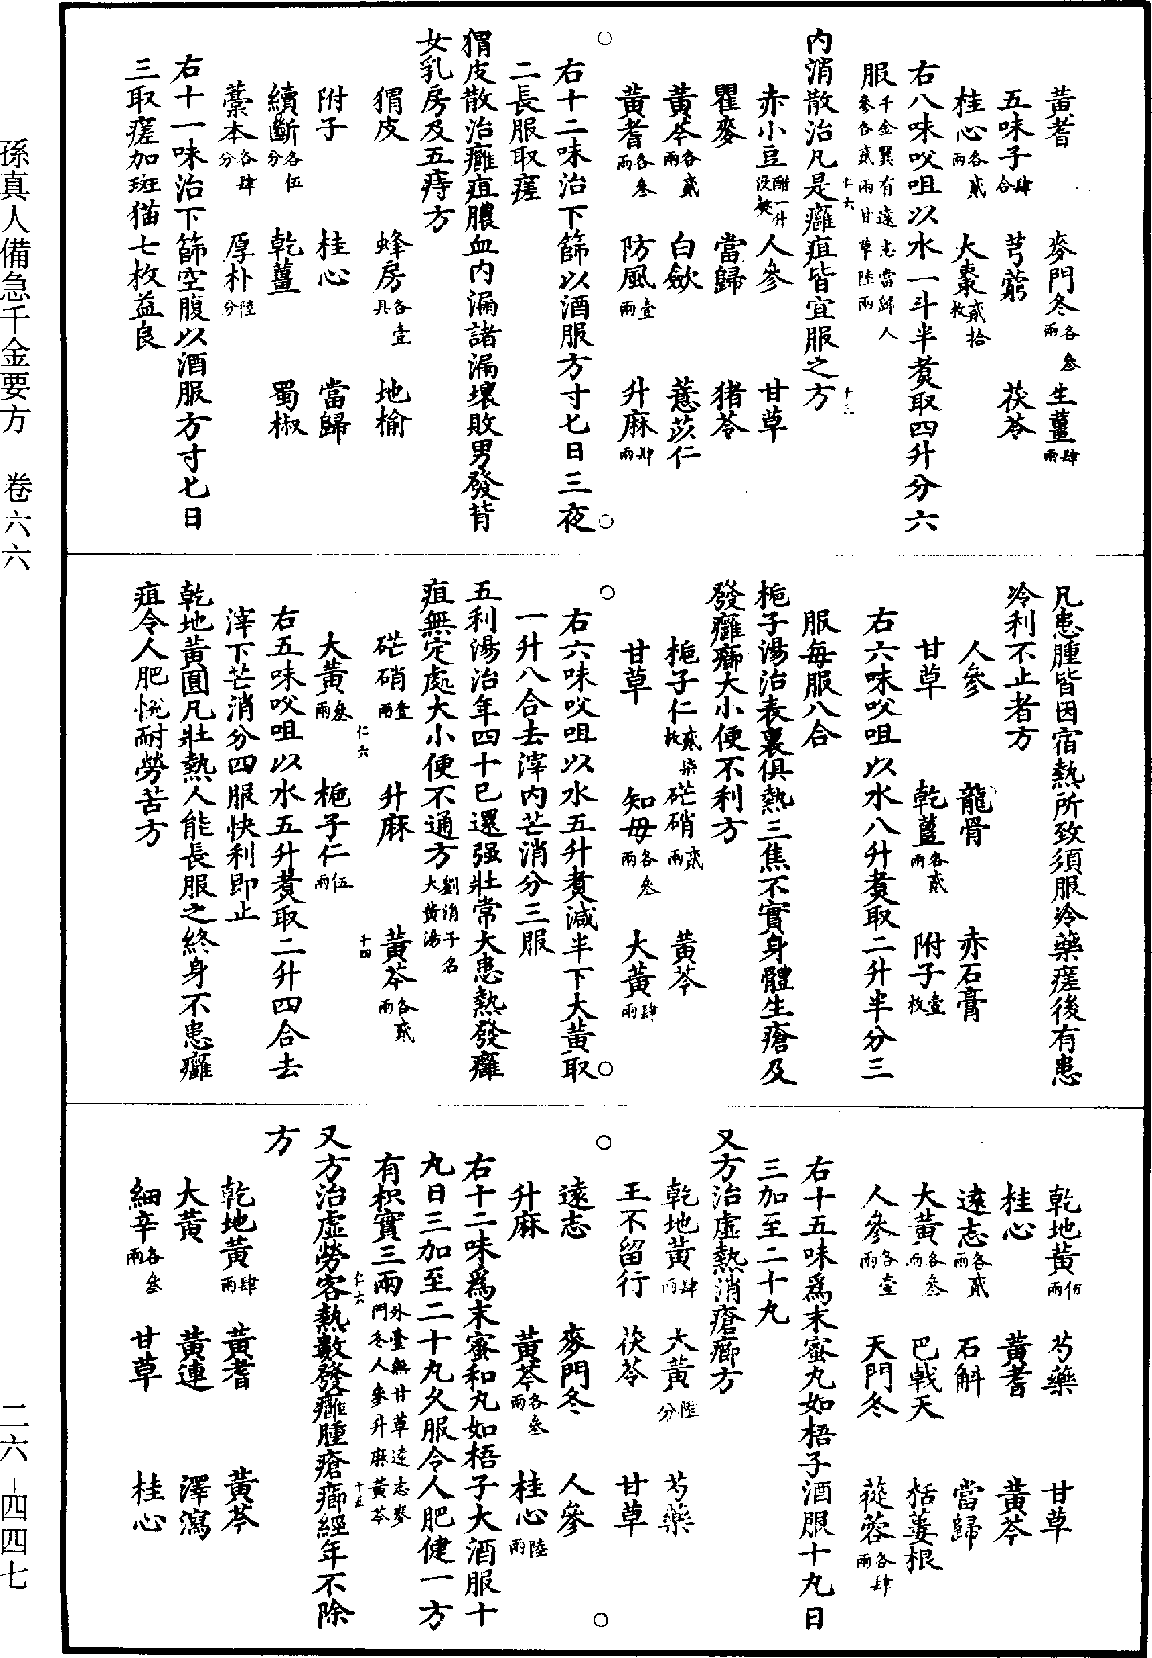 黃耆 麥門冬各叁兩 生薑肆兩
五味子肆合 芎藭 茯苓
桂心各貳兩 大棗貳拾枚
右八味㕮咀以水一斗半煑取四升分六
服千金翼有遠志當歸人參各貳兩甘草陸兩
十六
內消散治凡是癰疽皆宜服之方
十三
赤小豆酣一升没熬 人參 甘草
瞿麥 當歸 猪苓
黃芩各貳兩 白歛 薏苡仁
黃耆各叁兩 防風壹兩 升麻肆兩
右十二味治下篩以酒服方寸匕日三夜
二長服取瘥
猬皮散治癰疽膿血內漏諸漏壞敗男發背
女乳房及五痔方
猬皮 蜂房各壹具 地榆
附子 桂心 當歸
續斷各伍分 乾薑 蜀椒
藁本各肆分 厚朴陸分
右十一味治下篩空腹以酒服方寸匕日
三取瘥加斑猫七枚益良
凡患腫皆因宿熱所致須服冷藥瘥後有患
冷利不止者方
人參 龍骨 赤石膏
甘草 乾薑各貳兩 附子壹枚
右六味㕮咀以水八升煑取二升半分三
服每服八合
梔子湯治表裏俱熱三焦不實身體生瘡及
發癰癤大小便不利方
梔子仁貳柒枚 芒硝貳兩 黃芩
甘草 知母各叁兩 大黃肆兩
右六味㕮咀以水五升煑減半下大黃取
一升八合去滓內芒消分三服
五利湯治年四十已還强壯常大患熱發癰
疽無定處大小便不通方劉涓子名大黃湯
芒硝壹兩 升麻 黃芩各貳兩
仁六
十四
大黃叁兩 梔子仁伍兩
右五味㕮咀以水五升煑取二升四合去
滓下芒消分四服快利即止
乾地黃圓凡壯熱人能長服之終身不患癰
疽令人肥悅耐勞苦方
乾地黃伍兩 芍藥 甘草
桂心 黃耆 黃芩
遠志各貳兩 石斛 當歸
大黃各叁兩 巴戟天 栝蔞根
人參各壹兩 天門冬 蓯蓉各肆兩
右十五味爲末蜜丸如梧子酒服十九日
三加至二十九
又方治虛熱消瘡癤方
乾地黃肆兩 大黃陸分 芍藥
王不留行 茯苓 甘草
遠志 麥門冬 人參
升麻 黃芩各叁兩 桂心陸兩
右十二味爲末蜜和丸如梧子大酒服十
九日三加至二十九久服令人肥健一方
有枳實三兩外臺無甘草遠志麥門冬人參升麻黃芩
仁六
十五
又方治虛勞客熱數發癰腫瘡癤經年不除
方
乾地黃肆兩 黃耆 黃芩
大黃 黃連 澤瀉
細辛各叁兩 甘草 桂心
孫真人備急千金要方 卷六六 二六—四四七